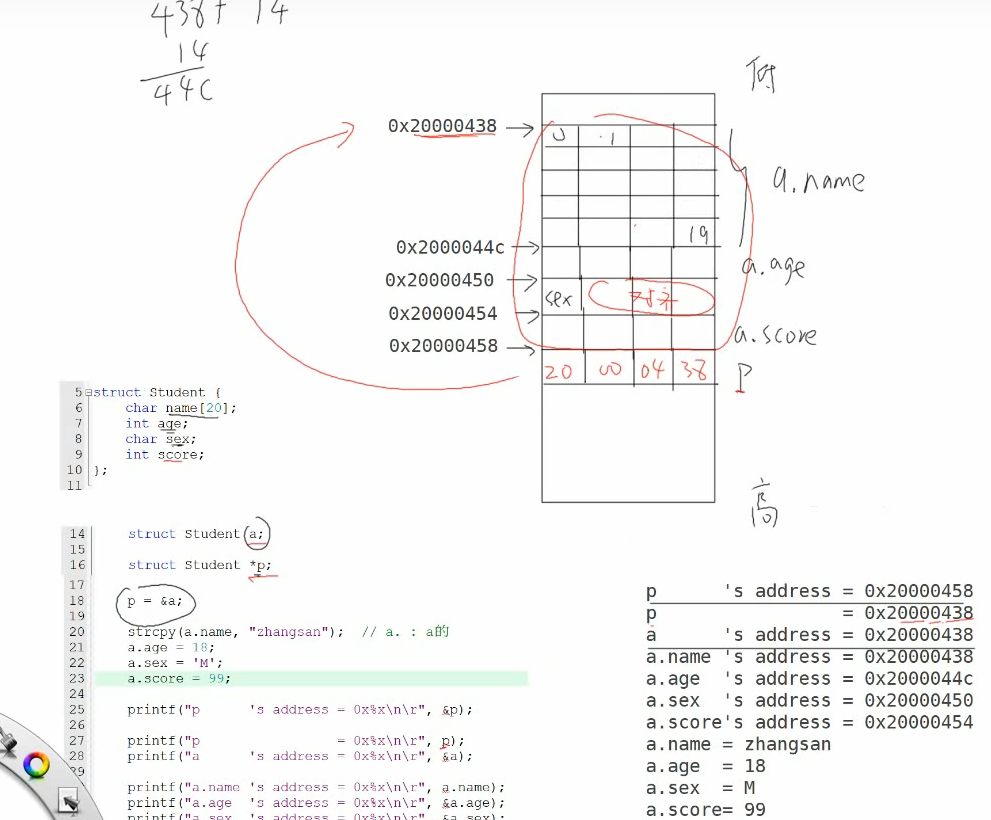 438+ 14
14
44C
低
0x20000438
0 1
a.name
19
0x2000044c
a.age
0x20000450
sex
0x20000454
a.score
0x20000458
20 00 04 38 P
高
5 struct Student {
6 char name[20];
7 int age;
8 char sex;
9 int score;
10 };
11
14 struct Student a;
15
16 struct Student *p;
17
18 p = &a;
19
20 strcpy(a.name, "zhangsan"); // a. : a的
21 a.age = 18;
22 a.sex = 'M';
23 a.score = 99;
24
25 printf("p 's address = 0x%x\n\r", &p);
26
27 printf("p = 0x%x\n\r", p);
28 printf("a 's address = 0x%x\n\r", &a);
29
printf("a.name 's address = 0x%x\n\r", a.name);
printf("a.age 's address = 0x%x\n\r", &a.age);
printf("a.sex 's address = 0x%x\n\r", &a.sex);
p 's address = 0x20000458
p = 0x20000438
a 's address = 0x20000438
a.name 's address = 0x20000438
a.age 's address = 0x2000044c
a.sex 's address = 0x20000450
a.score's address = 0x20000454
a.name = zhangsan
a.age = 18
a.sex = M
a.score= 99